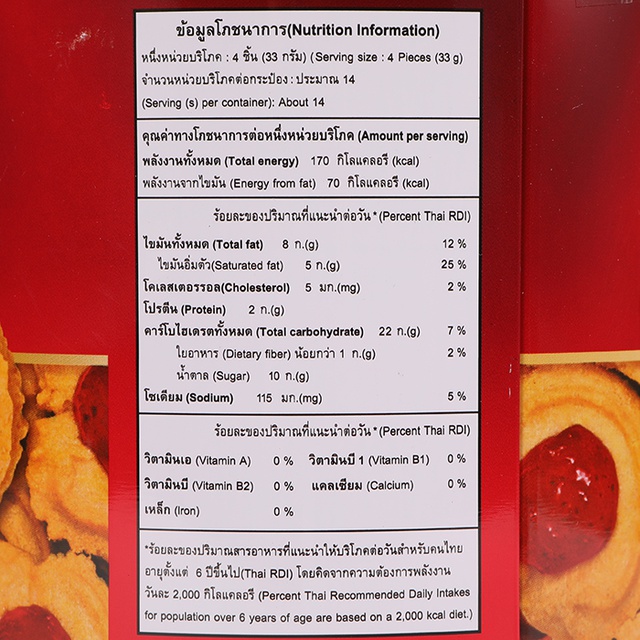 ข้อมูลโภชนาการ(Nutrition Information)
หนึ่งหน่วยบริโภค : 4 ชิ้น (33 กรัม) (Serving size : 4 Pieces (33 g)
จำนวนหน่วยบริโภคต่อกระป๋อง : ประมาณ 14
(Serving (s) per container): About 14
คุณค่าทางโภชนาการต่อหนึ่งหน่วยบริโภค (Amount per serving)
พลังงานทั้งหมด (Total energy) 170 กิโลแคลอรี (kcal)
พลังงานจากไขมัน (Energy from fat) 70 กิโลแคลอรี (kcal)
ร้อยละของปริมาณที่แนะนำต่อวัน *(Percent Thai RDI)
ไขมันทั้งหมด (Total fat) 8 ก.(g) 12 %
ไขมันอิ่มตัว(Saturated fat) 5 ก.(g) 25 %
โคเลสเตอรรอล(Cholesterol) 5 มก.(mg) 2 %
โปรตีน (Protein) 2 ก.(g)
คาร์โบไฮเดรตทั้งหมด (Total carbohydrate) 22 ก.(g) 7 %
ใยอาหาร (Dietary fiber) น้อยกว่า 1 ก.(g) 2 %
น้ำตาล (Sugar) 10 ก.(g)
โซเดียม (Sodium) 115 มก.(mg) 5 %
ร้อยละของปริมาณที่แนะนำต่อวัน *(Percent Thai RDI)
วิตามินเอ (Vitamin A) 0 % วิตามินบี 1 (Vitamin B1) 0 %
วิตามินบี (Vitamin B2) 0 % แคลเซียม (Calcium) 0 %
เหล็ก (Iron) 0 %
*ร้อยละของปริมาณสารอาหารที่แนะนำให้บริโภคต่อวันสำหรับคนไทย
อายุตั้งแต่ 6 ปีขึ้นไป(Thai RDI) โดยคิดจากความต้องการพลังงาน
วันละ 2,000 กิโลแคลอรี (Percent Thai Recommended Daily Intakes
for population over 6 years of age are based on a 2,000 kcal diet.)